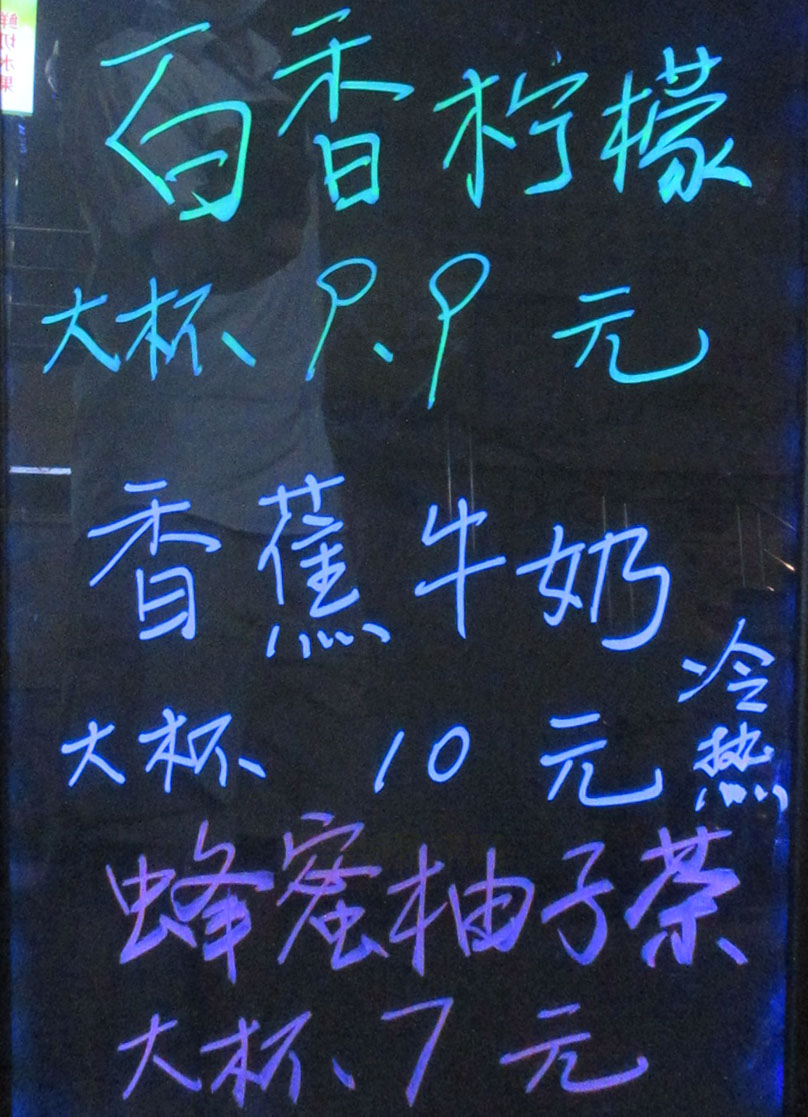 鲜切水果
百香柠檬
大杯、9.9元
香蕉牛奶
大杯、10元 冷热
蜂蜜柚子茶
大杯、7元